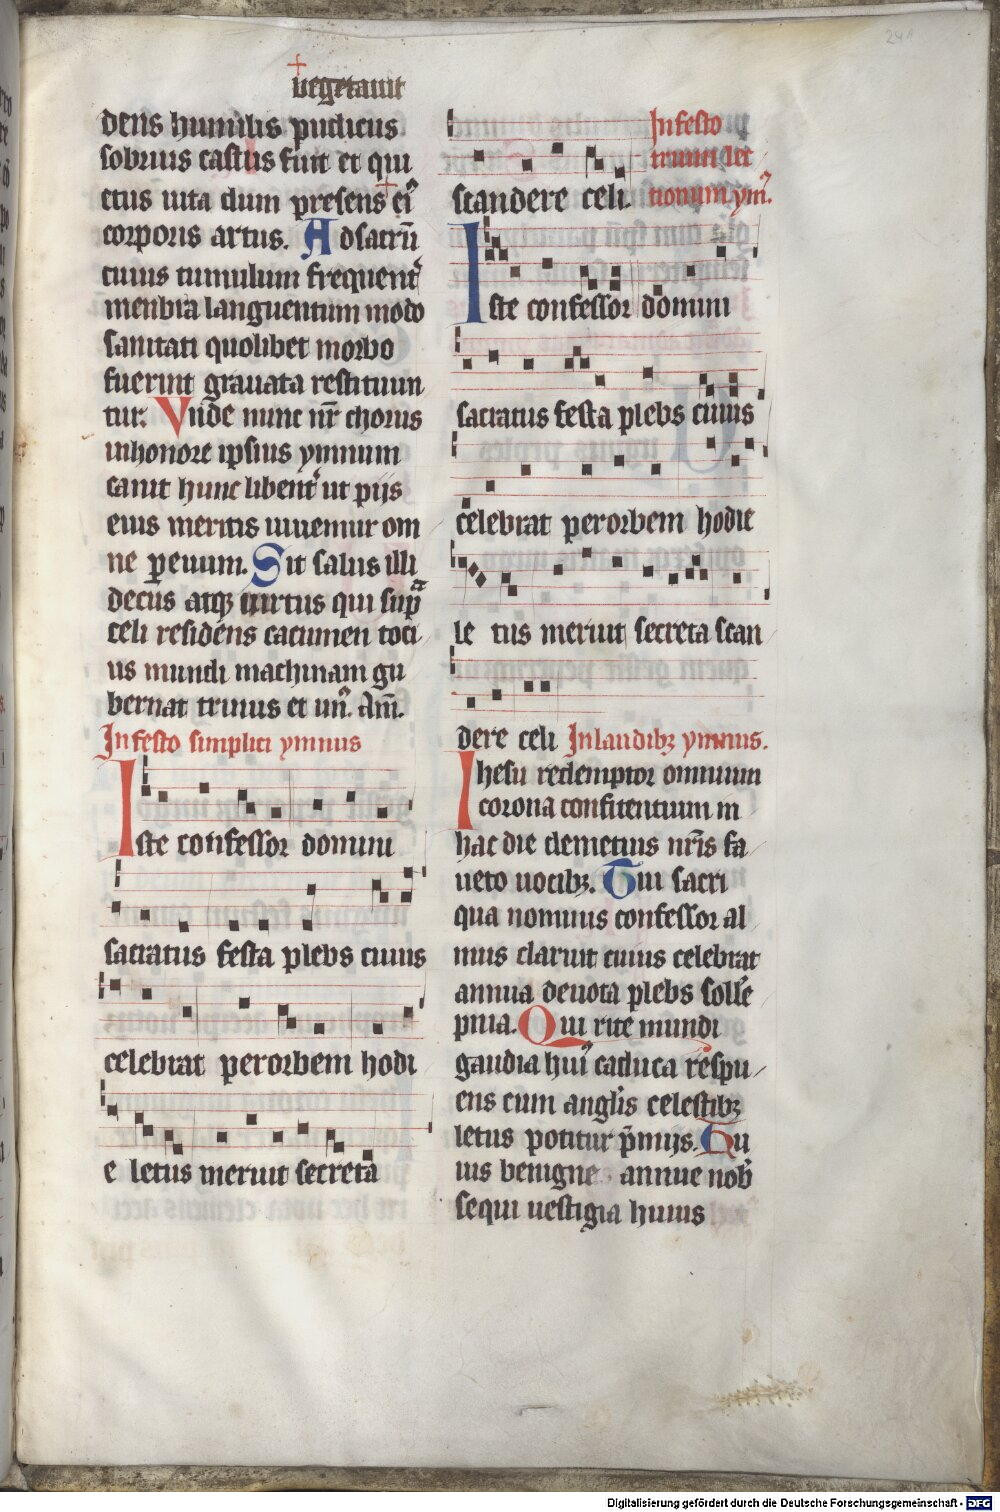 241
vegetauit
dens humilis pudicus
sobrius castus fuit et qui
etus uita dum presens ei᷒
corporis artus. Ad sacrū
cuius tumulum frequent᷒
menbra languentum modo
sanitati quolibet morbo
fuerint grauata restituun
tur. Vnde nunc nr̄ chorus
inhonore ipsius ymnum
canit hunc libent᷒ ut pijs
eius meritis iuuemur om
ne ꝑeuum. Sit salus illi
decus atqꝫ uirtus qui supᷓ
celi residens cacumen toci
us mundi machinam gu
bernat trinus et un᷒. Am̄.
In festo simplici ymnus
Iste confessor domini
sacratus festa plebs cuius
celebrat perorbem hodi
e letus meruit secreta
scandere celi.
In festo
trium lec
tionum ym᷒.
Iste confessor domini
sacratus festa plebs cuius
celebrat perorbem hodie
le tus meruit secreta scan
dere celi In laudibꝫ ymnus.
Ihesu redemptor omnium
corona confitentium in
hac die clemetius nr̄is fa
ueto uocibꝫ. Tui sacri
qua nominis confessor al
mus claruit cuius celebrat
annua deuota plebs solle᷒
pnia. Qui rite mundi
gaudia hui᷒ caduca respu
ens cum angl̄is celestibꝫ
letus potitur p̄mijs. Cu
ius benigne annue nob̄
sequi uestigia huius
Digitalisierung gefördert durch die Deutsche Forschungsgemeinschaft - DFG